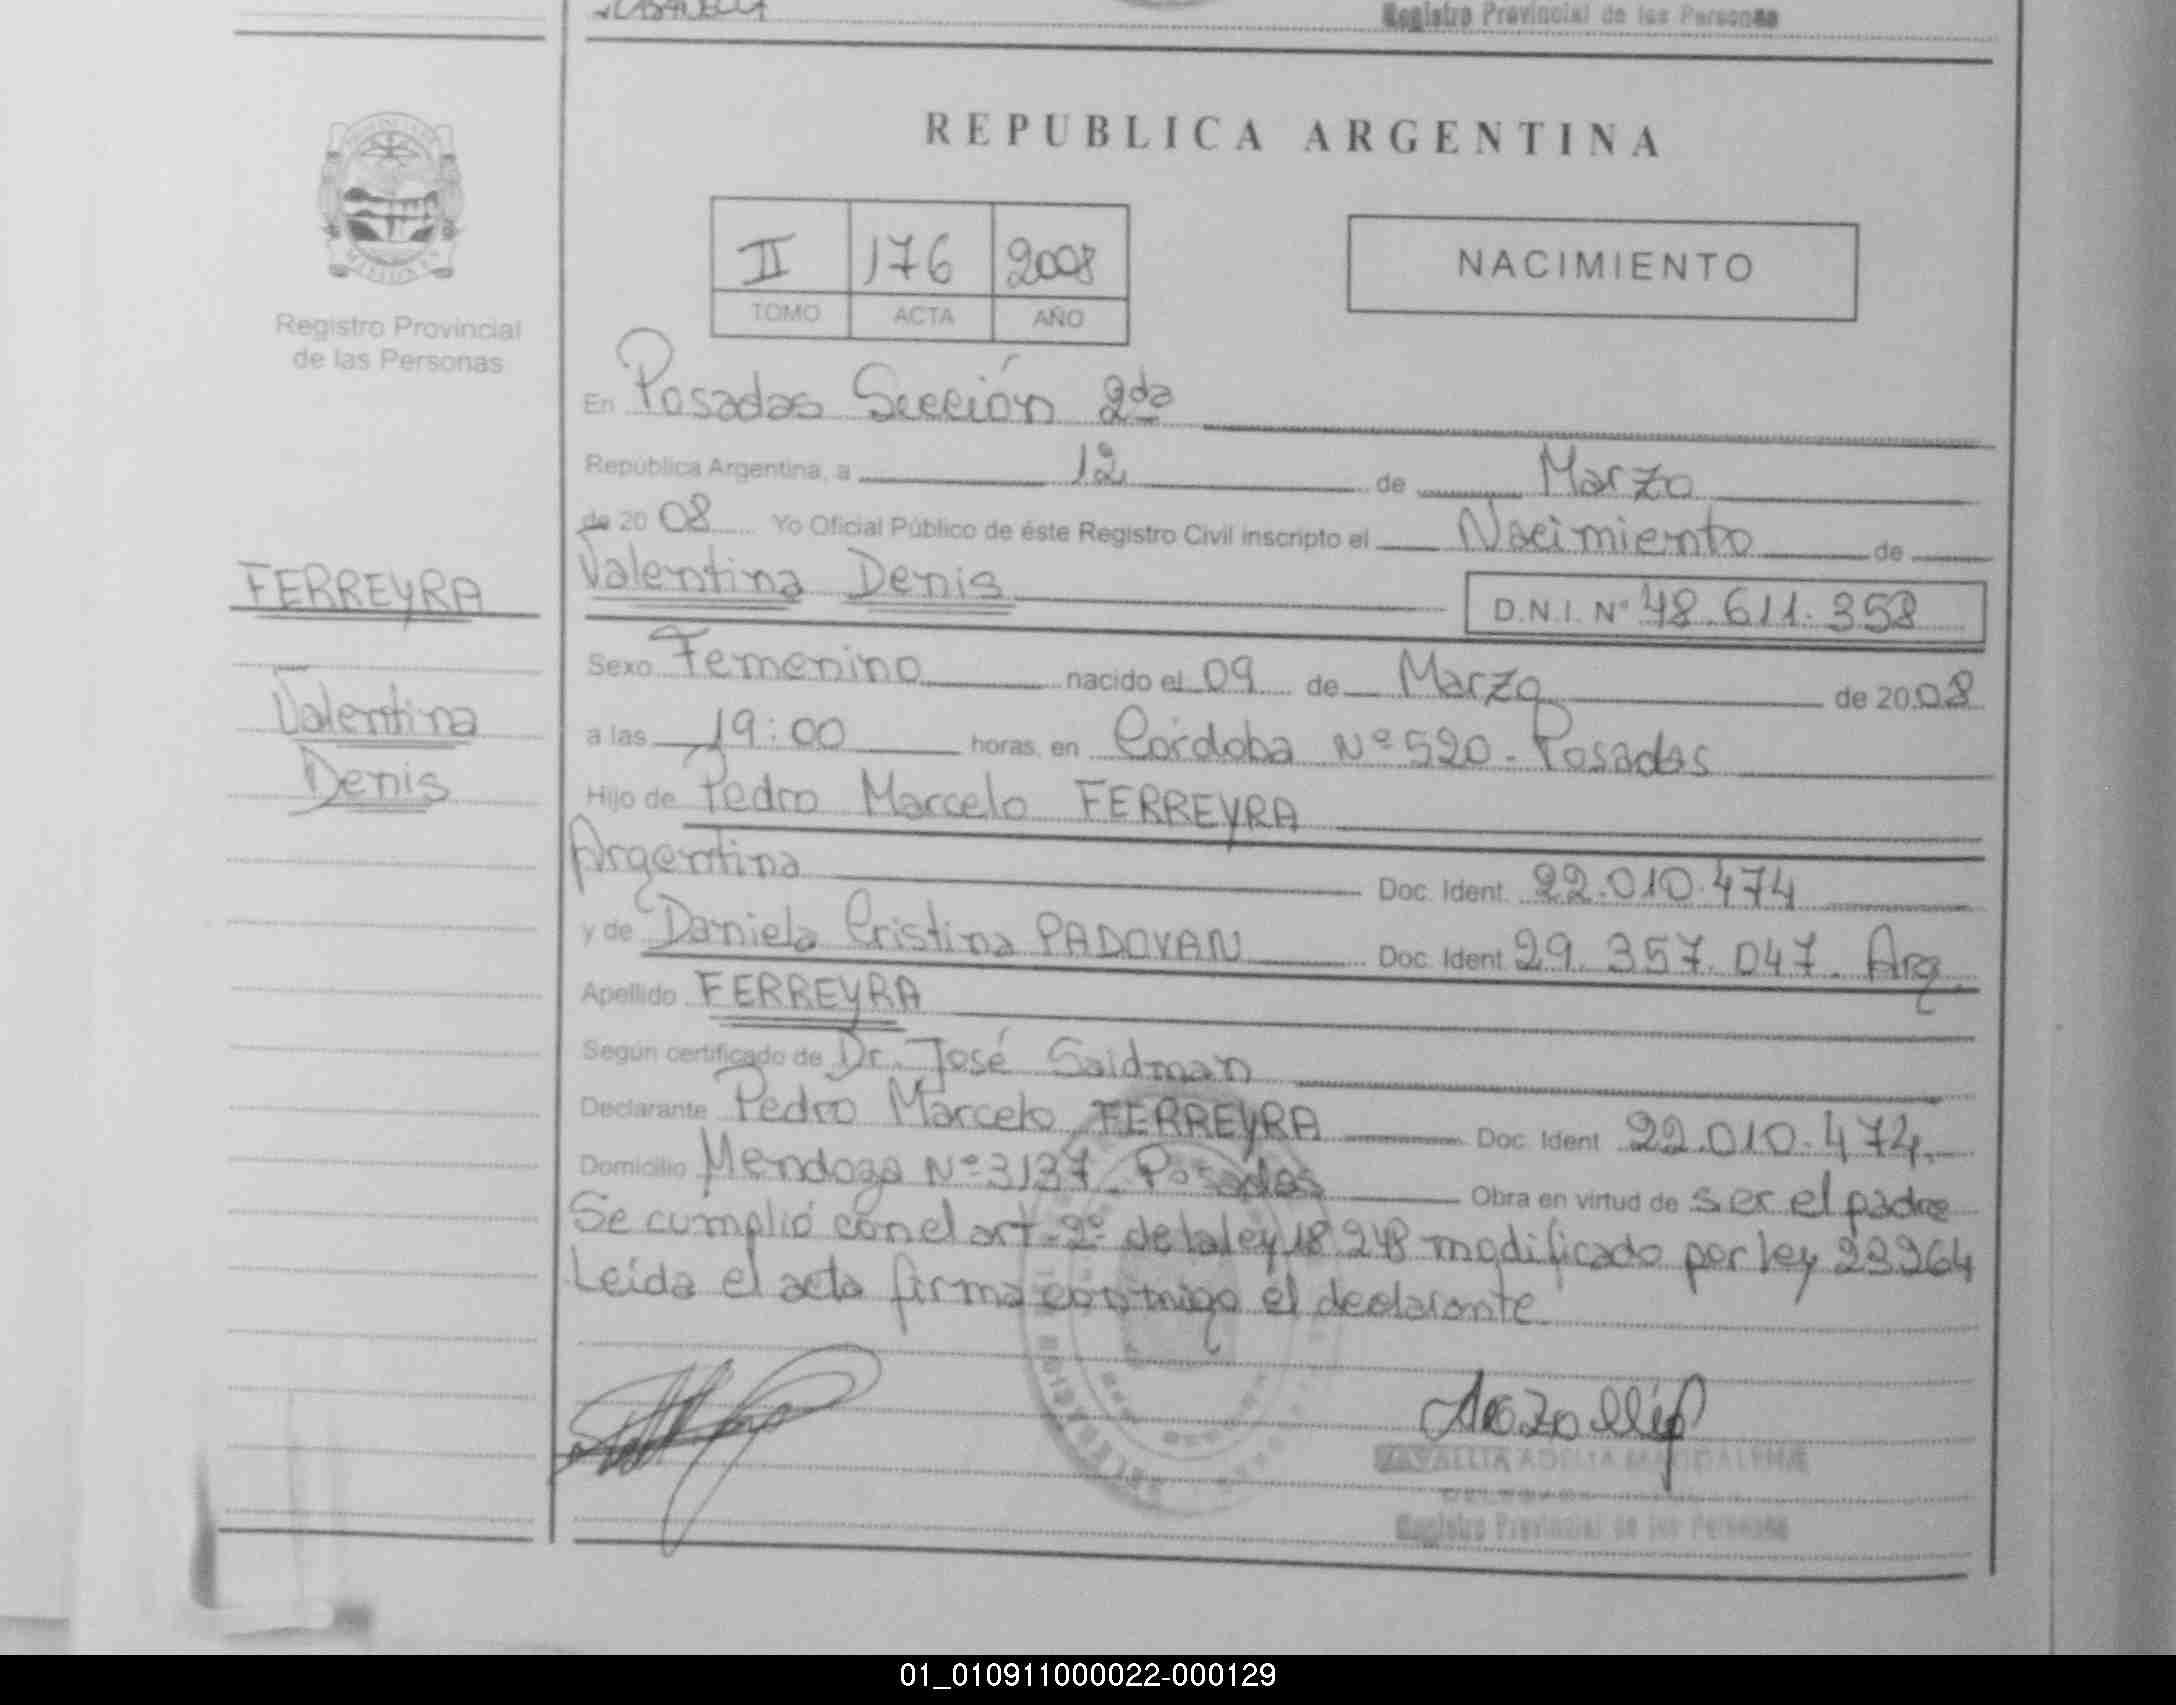 Registro Provincial de las Personas
REPUBLICA ARGENTINA
II 176 2008
TOMO ACTA AÑO
NACIMIENTO
Registro Provincial
de las Personas
FERREYRA
Valentina
Denis
En Posadas Sección 2da
República Argentina, a 12 de Marzo
de 2008 Yo Oficial Público de éste Registro Civil inscripto el Nacimiento de
Valentina Denis D.N.I. Nº 48.611.358
Sexo Femenino nacido el 09 de Marzo de 2008
a las 19:00 horas, en Córdoba Nº 520 - Posadas
Hijo de Pedro Marcelo FERREYRA
Argentina Doc. Ident. 22.010.474
y de Daniela Cristina PADOVAN Doc. Ident 29.357.047. Arg.
Apellido FERREYRA
Según certificado de Dr. José Saidman
Declarante Pedro Marcelo FERREYRA Doc. Ident 22.010.474.
Domicilio Mendoza Nº 3137 - Posadas Obra en virtud de ser el padre
Se cumplió con el art. 2º de la ley 18248 modificado por ley 23264
Leída el acta firma conmigo el declarante
ADELIA MAGDALENA
Registro Provincial de las Personas
01_010911000022-000129